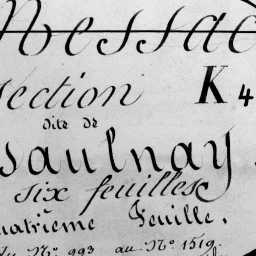 Messac
Section K 4
dite de
Saulnay.
six feuilles
quatrième Feuille.
du N° 993 au N° 1519.